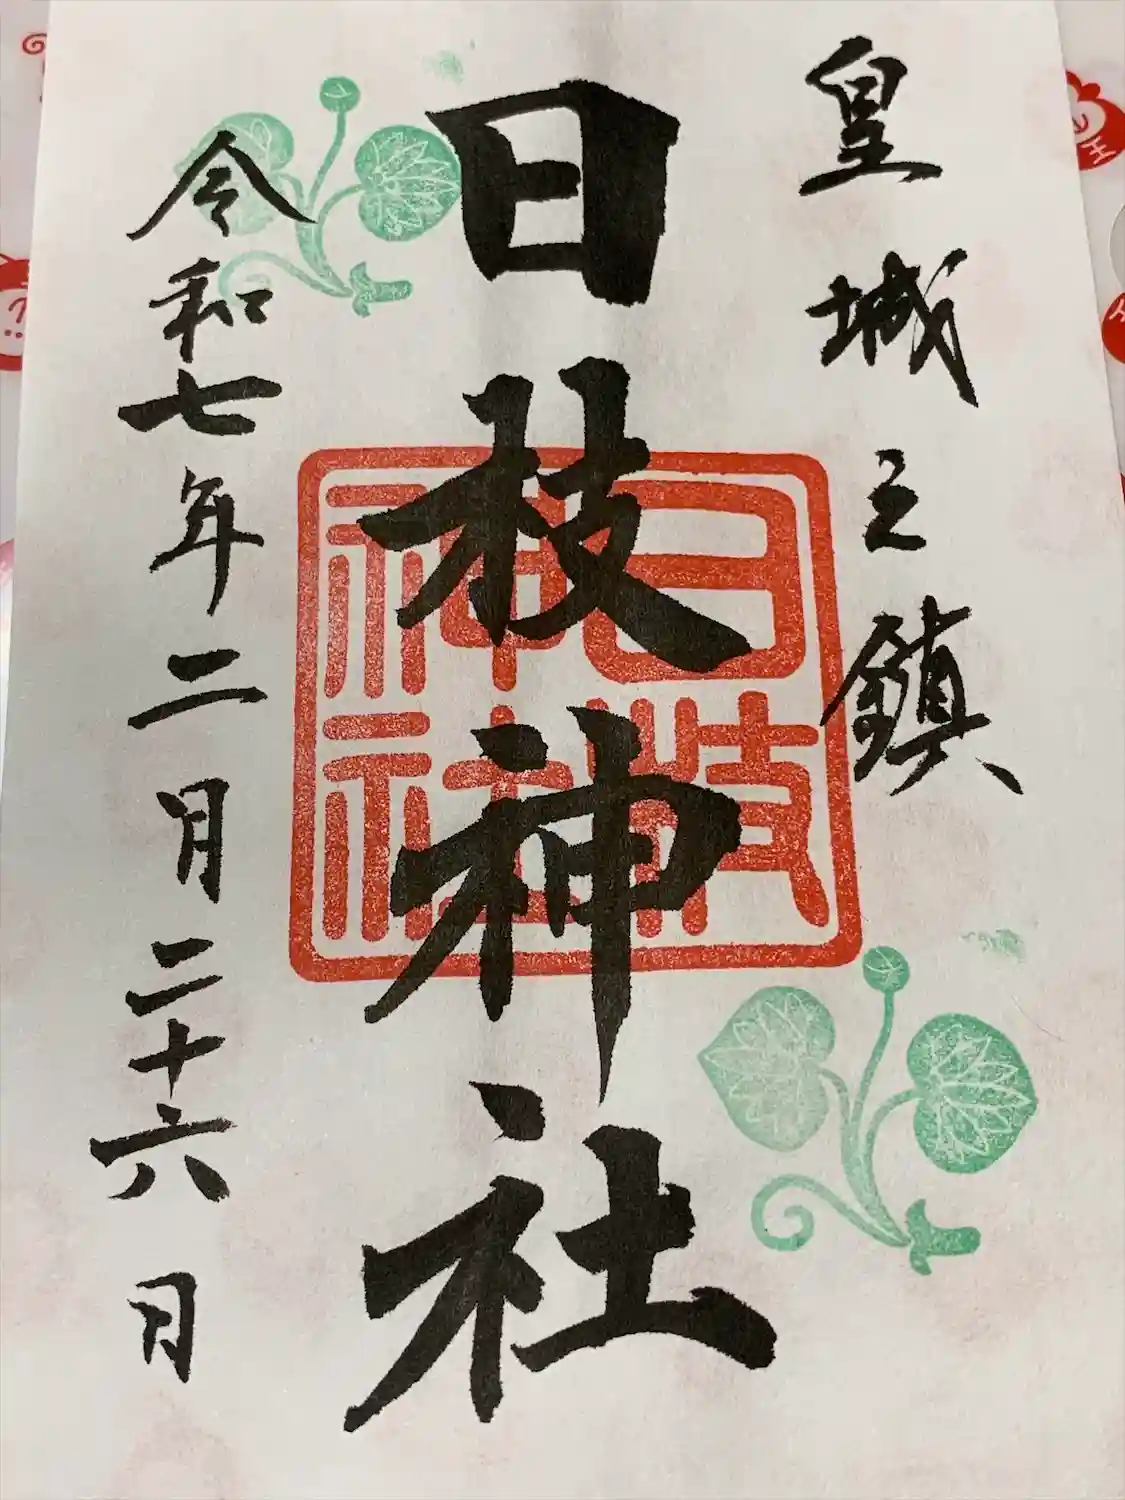 皇城之鎮
日枝神社
日枝
神社
令和七年二月二十六日